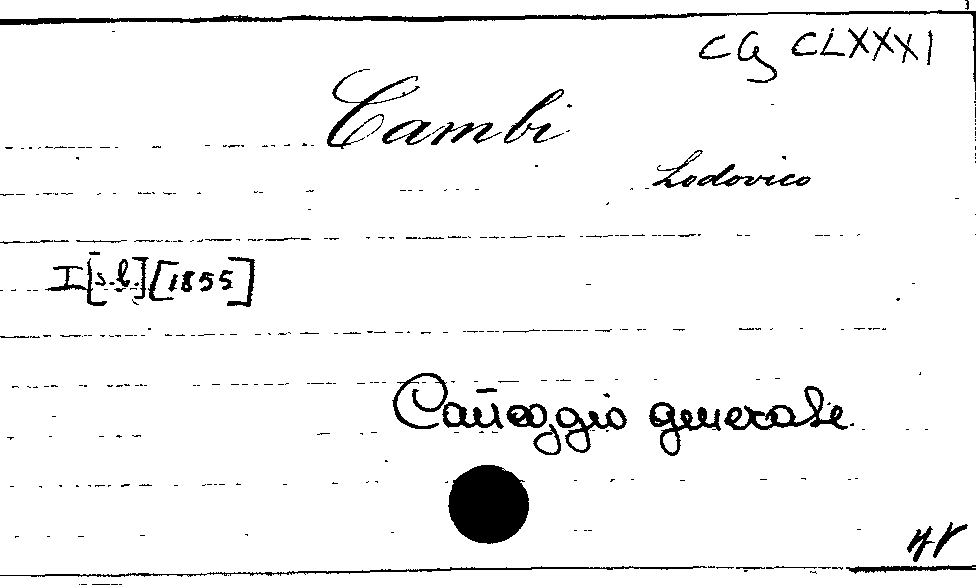 CG CLXXXI
Cambi
Lodovico
I [s.l.] [1855]
Carteggio generale